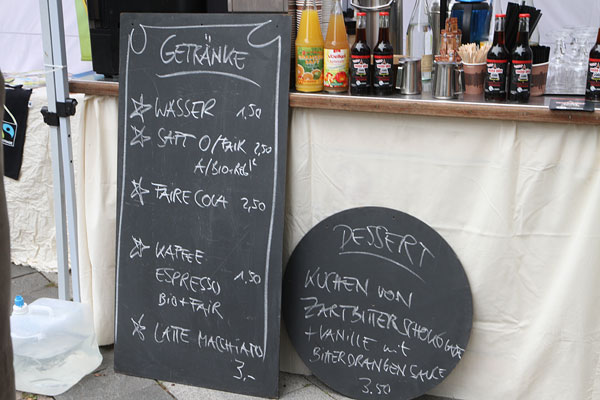 GETRÄNKE
WASSER 1,50
SAFT O/FAIR 2,50
A/BIO+REG
FAIRE COLA 2,50
KAFFEE
ESPRESSO 1,50
BIO+FAIR
LATTE MACCHIATO
3,-
DESSERT
KUCHEN VON
ZARTBITTERSCHOKOLADE
+ VANILLE mit
BITTERORANGENSAUCE
3.50